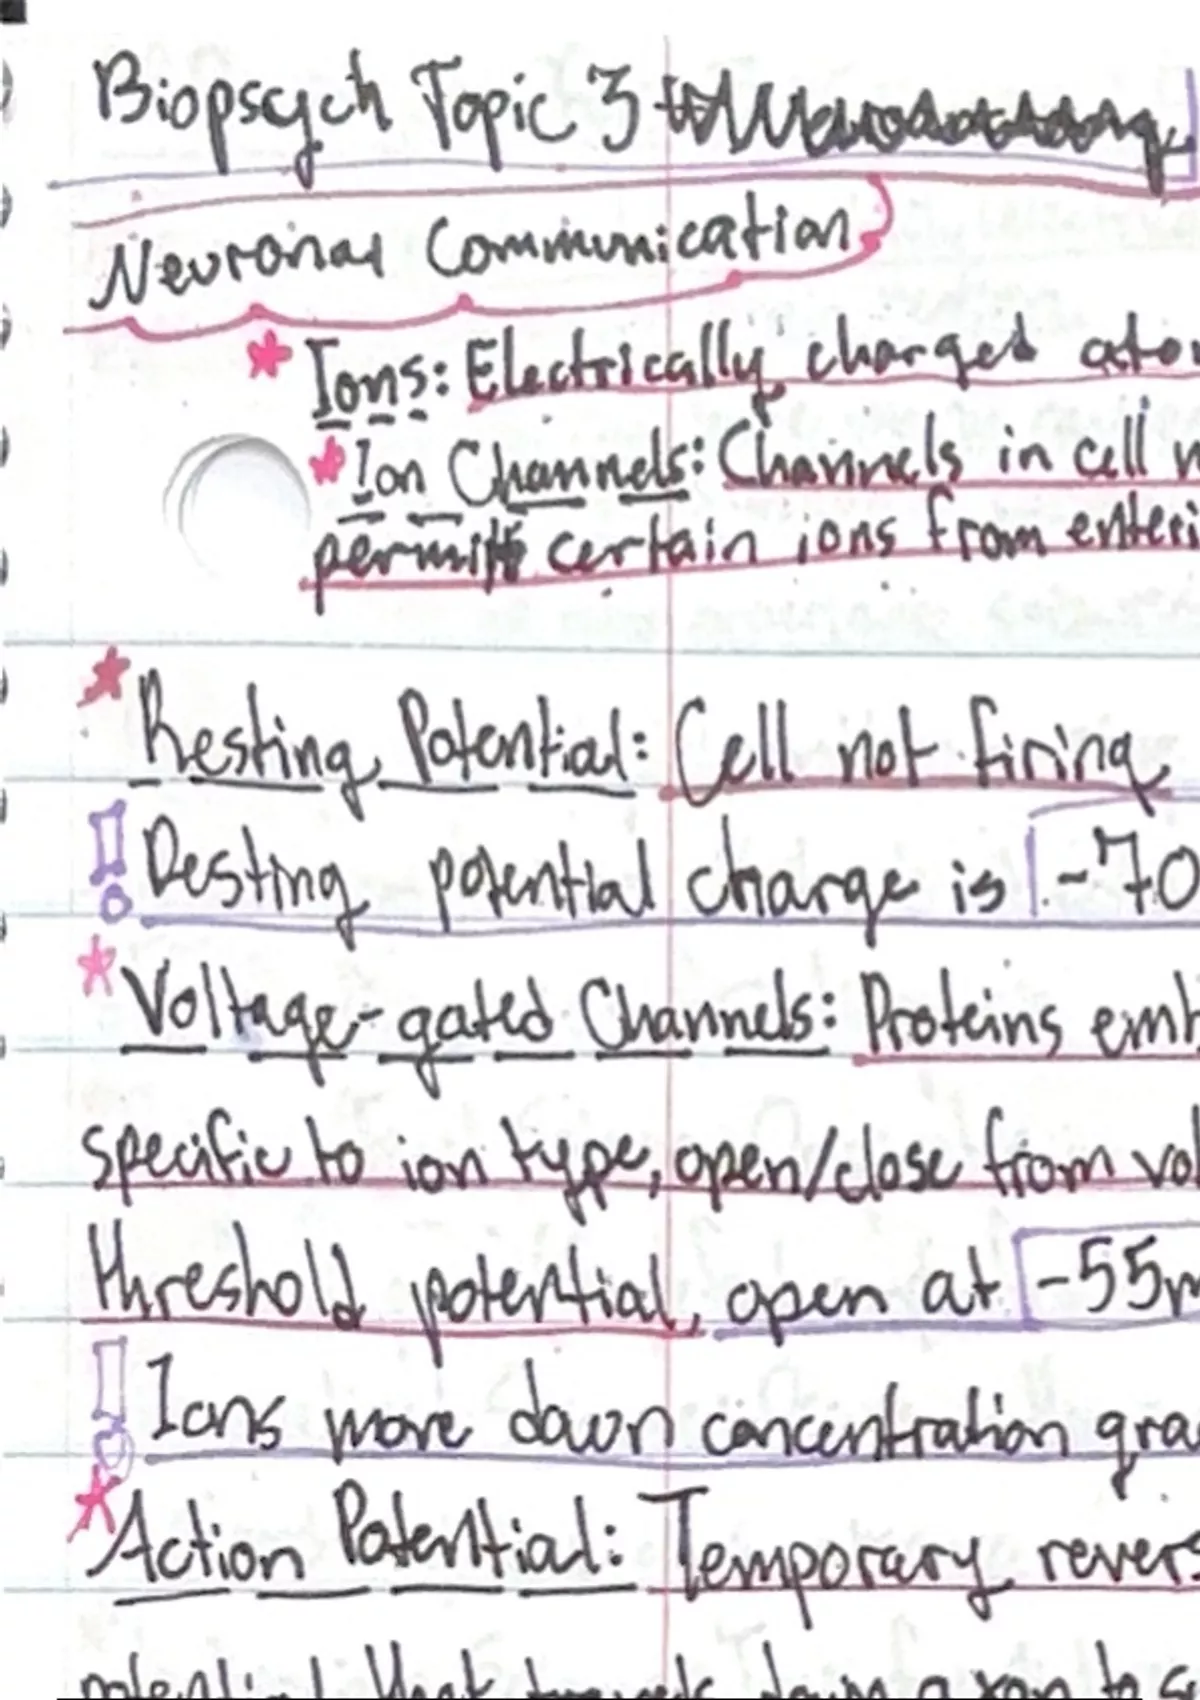 Biopsych Topic 3
Neuronal Communication
* Ions: Electrically charged ato
* Ion Channels: Channels in cell m
permit certain ions from enteri
* Resting Potential: Cell not firing
! Resting potential charge is -70
* Voltage-gated Channels: Proteins emb
specific to ion type, open/close from vol
threshold potential, open at -55m
! Ions move down concentration gra
* Action Potential: Temporary revers
potential that travels down axon to